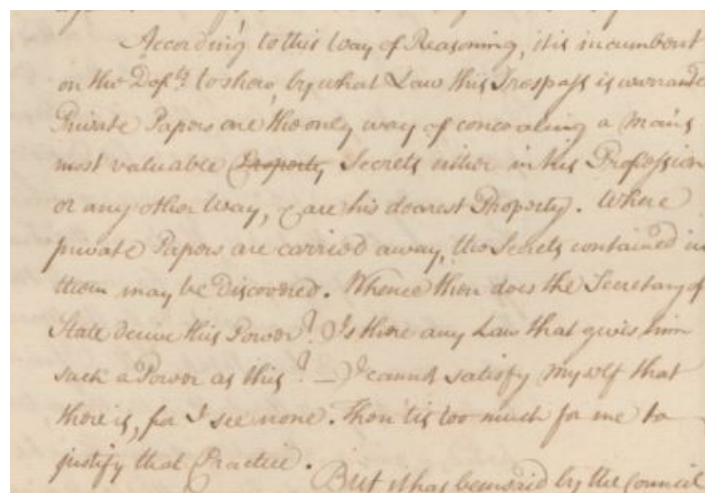 According to this Way of Reasoning, it is incumbent
on the Def.ts to shew, by what Law this Trespass is warrante
Private Papers are the only way of concealing a Man's
most valuable Property Secrets either in his Profession
or any other Way, & are his dearest Property. Where
private Papers are carried away, the Secrets contained in
them may be Discovered. Whence then does the Secretary of
State derive this Power? Is there any Law that gives him
such a Power as this? — I cannot satisfy myself that
there is, for I see none. Then 'tis too much for me to
justify that Practice.
But it has been said by the Council